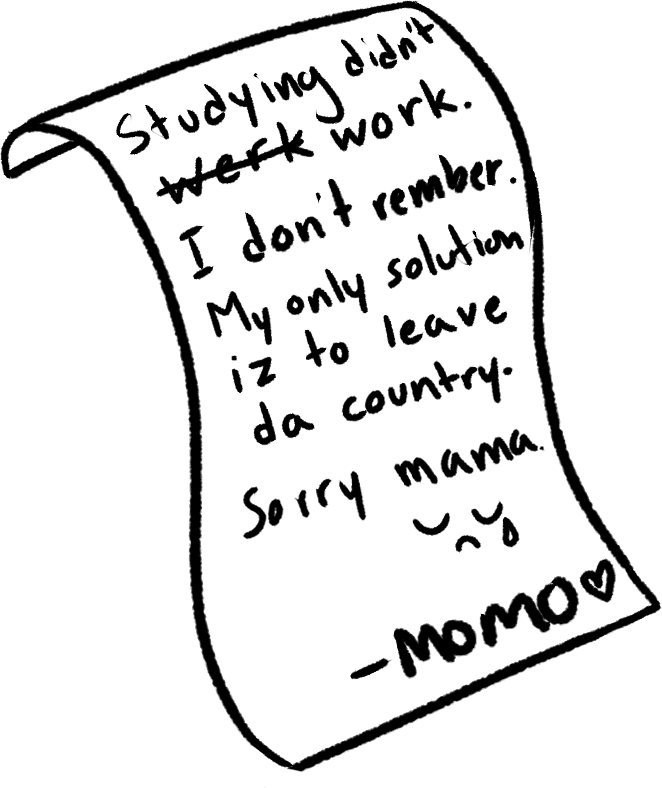 Studying didn't
werk work.
I don't rember.
My only solution
iz to leave
da country.
Sorry mama.
-MOMO♡